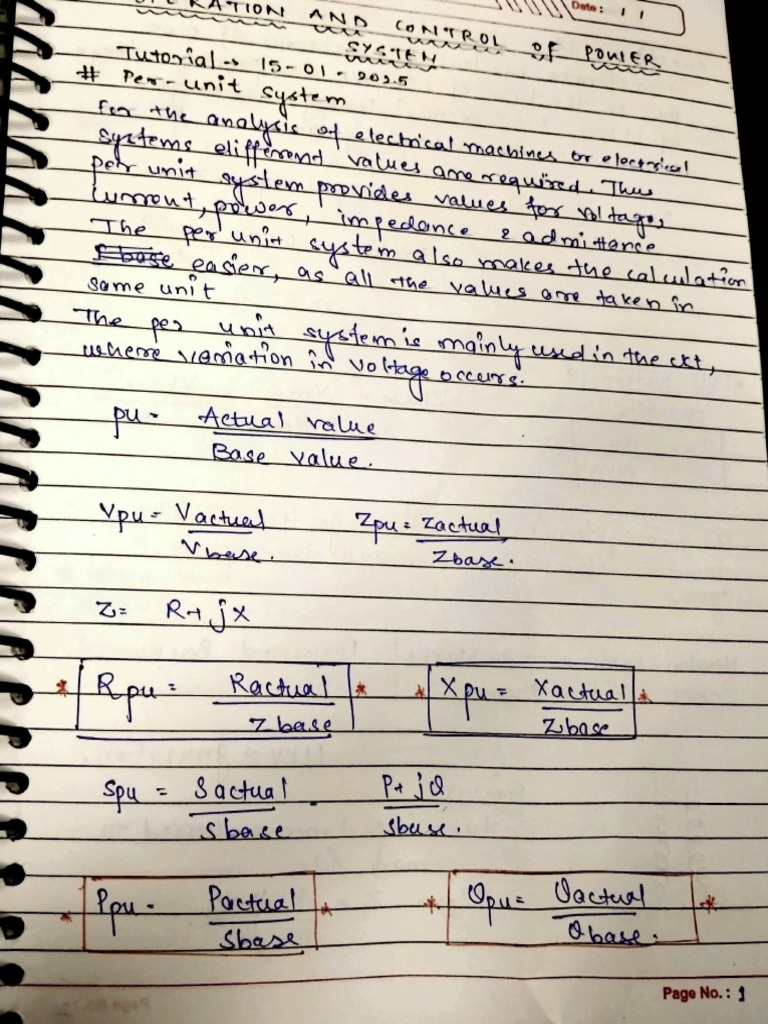 OPERATION AND CONTROL OF POWER
SYSTEM
Date: / /
Tutorial → 15-01-2025
# Per-unit system
For the analysis of electrical machines or electrical
systems different values are required. Thus
per unit system provides values for voltage,
current, power, impedance & admittance
The per unit system also makes the calculation
easier, as all the values are taken in
same unit
The per unit system is mainly used in the ckt,
where variation in voltage occurs.
pu = Actual value
Base value.
Vpu = Vactual Zpu = Zactual
Vbase. Zbase.
Z = R + jX
* Rpu = Ractual * * Xpu = Xactual *
Zbase Zbase
Spu = Sactual = P + jQ
Sbase Sbase.
* Ppu = Pactual * * Qpu = Qactual *
Sbase Qbase.
Page No.: 1